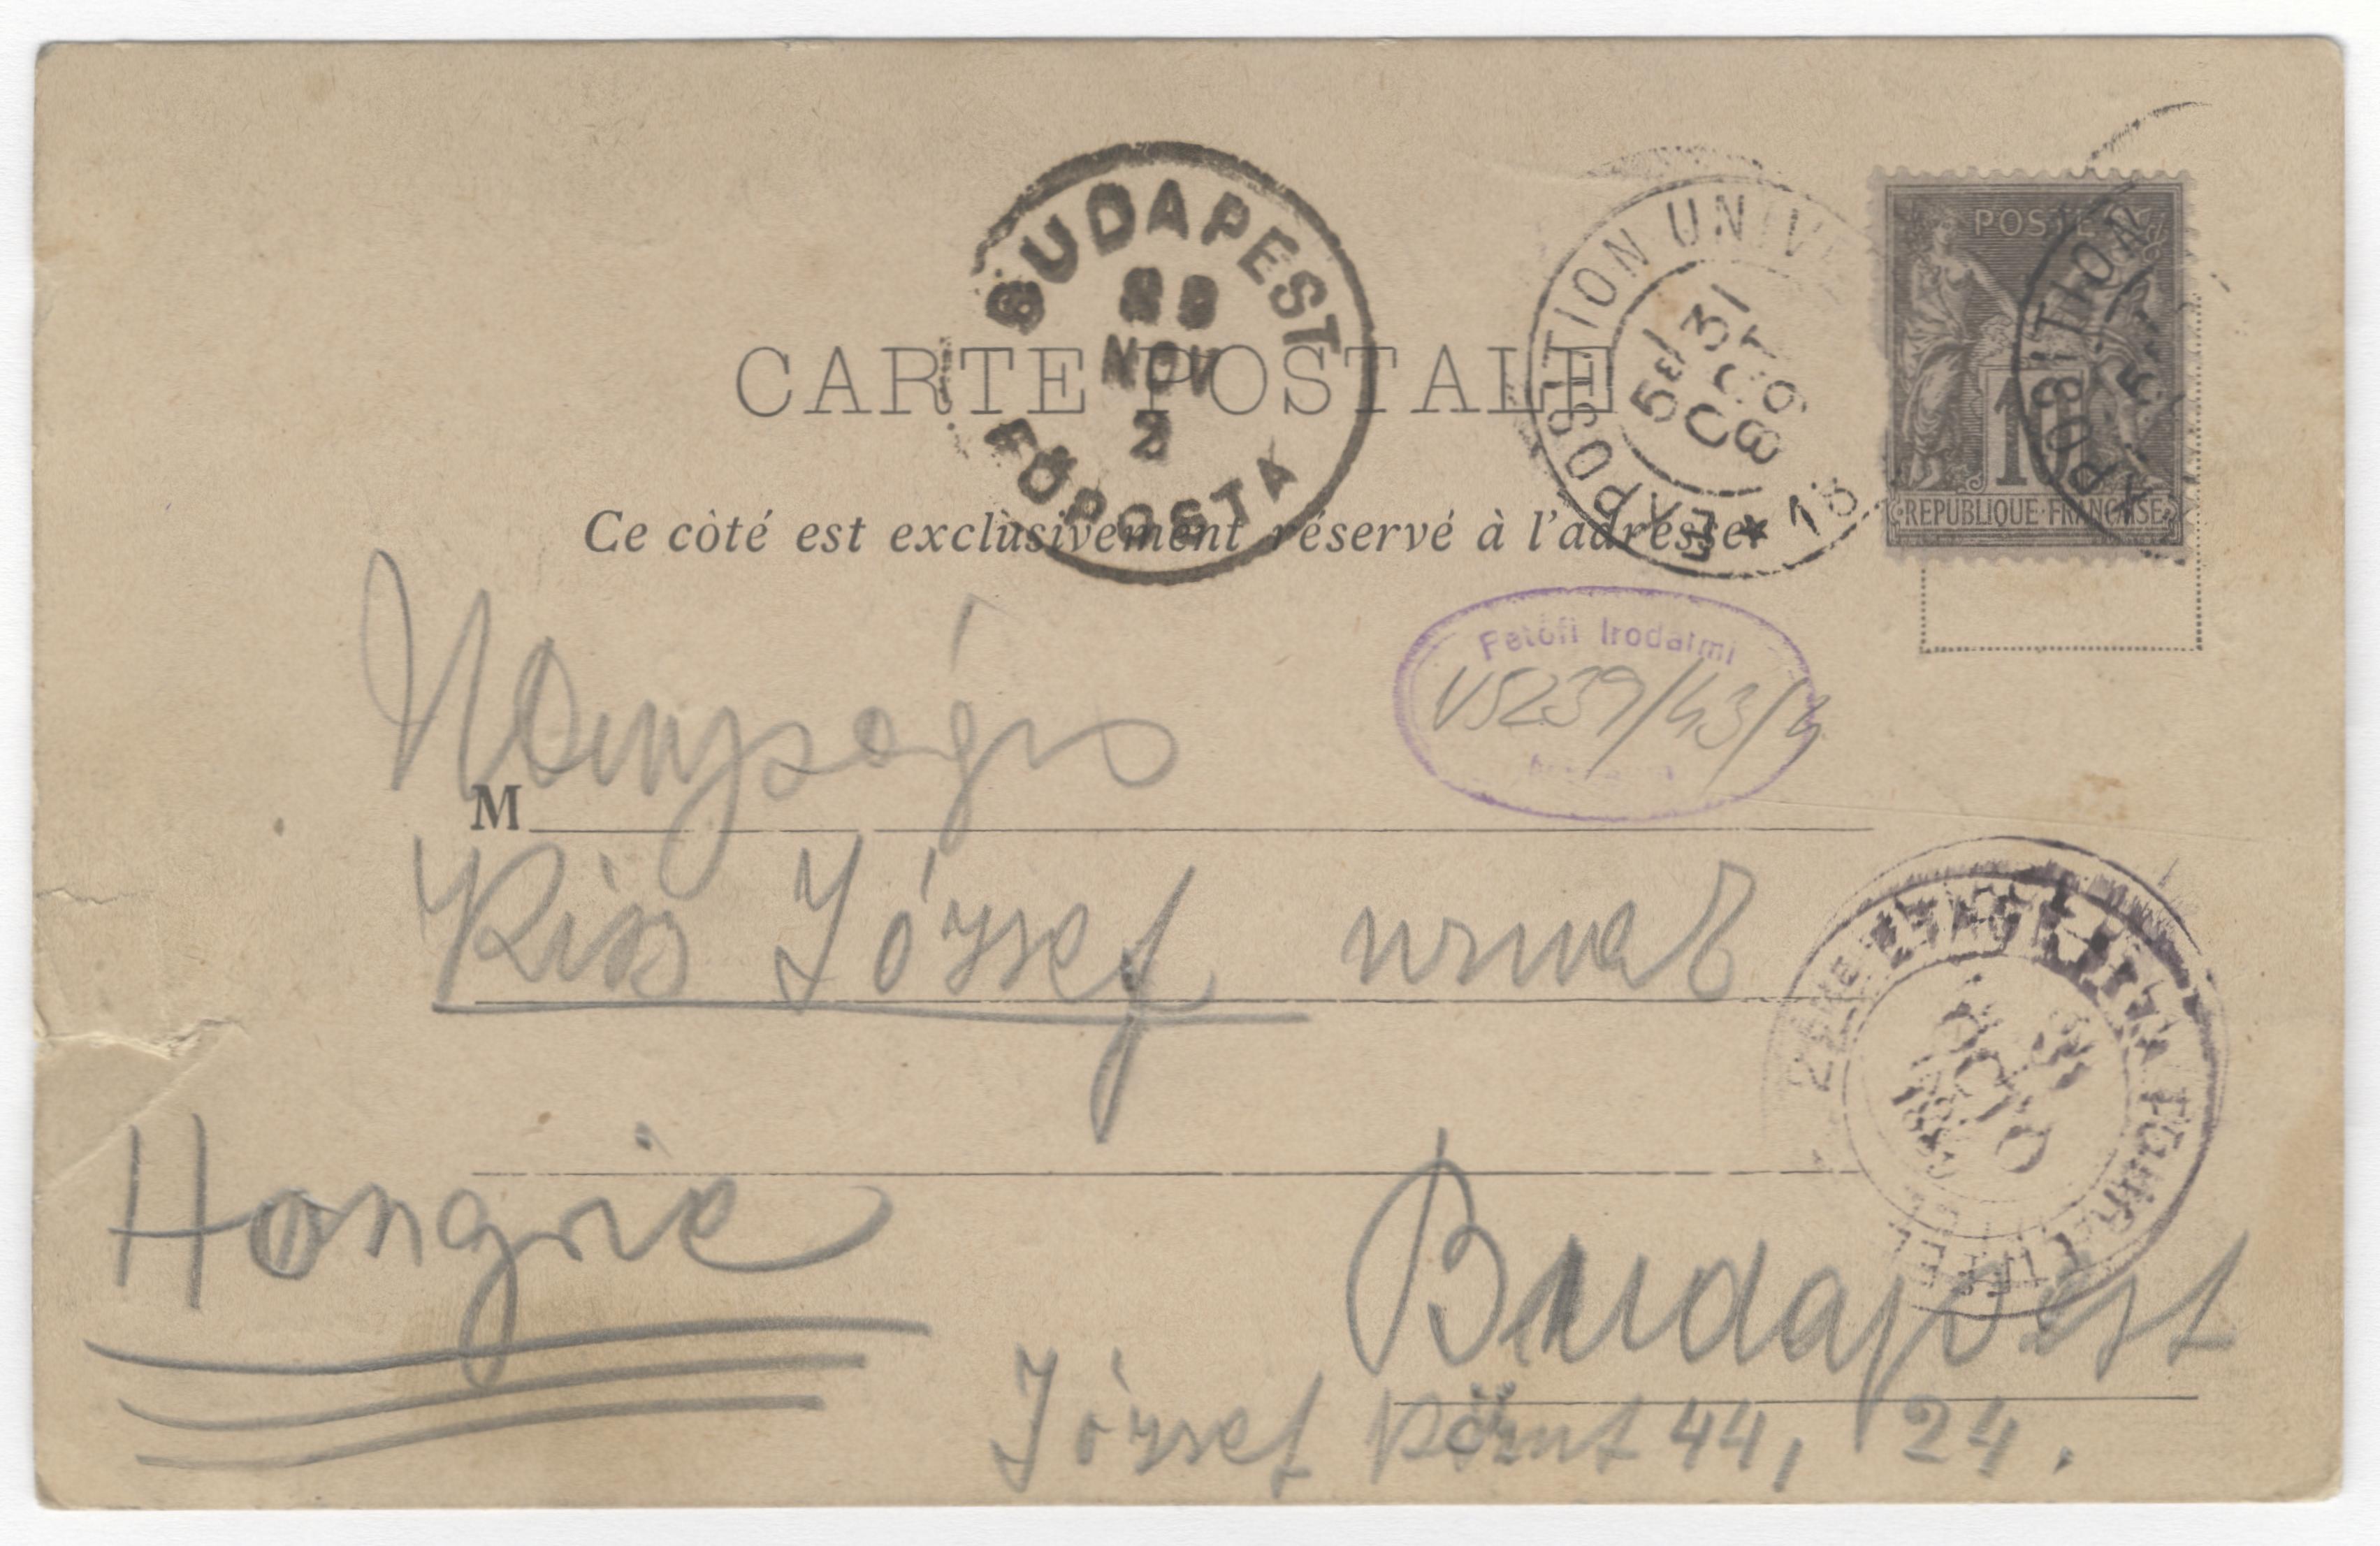 BUDAPEST
89
NOV
3
FŐPOSTA
EXPOSITION UNIVE
5E/ 31
OCT
89
* 18
POSTE
EXPOSITION
5E/
10
REPUBLIQUE FRANÇAISE
CARTE POSTALE
Ce côté est exclusivement réservé à l'adresse.
Petőfi Irodalmi
V5239/43/4
Nagyságos
M
Kiss József urnak
2EME
EIFFEL
Hongrie
Budapest
József körut 44, 24.